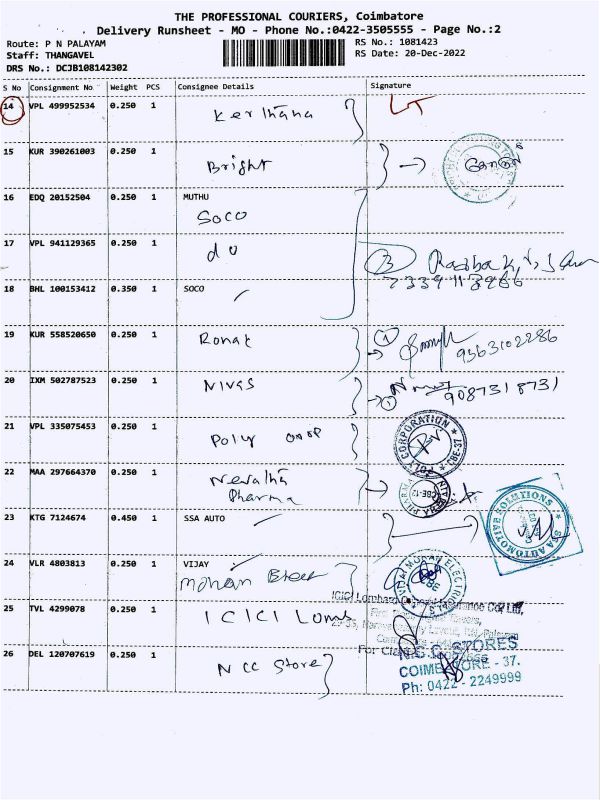 THE PROFESSIONAL COURIERS, Coimbatore
Delivery Runsheet - MO - Phone No.:0422-3505555 - Page No.:2
Route: P N PALAYAM
RS No.: 1081423
Staff: THANGAVEL
RS Date: 20-Dec-2022
DRS No.: DCJB108142302
S No Consignment No Weight PCS Consignee Details Signature
14 VPL 499952534 0.250 1 Kerthana
15 KUR 390261003 0.250 1 Bright
16 EDQ 20152504 0.250 1 MUTHU
SOCO
17 VPL 941129365 0.250 1 do
3
18 BHL 100153412 0.350 1 SOCO
19 KUR 558520650 0.250 1 Ronak 1
9363102286
20 IXM 502787523 0.250 1 Nivas 1
9087318731
21 VPL 335075453 0.250 1 Poly
POLY CORPORATION CBE-37
22 MAA 297664370 0.250 1
Pharma
CBE-12
23 KTG 7124674 0.450 1 SSA AUTO
SSA AUTOMOTIVE SOLUTIONS
24 VLR 4803813 0.250 1 VIJAY
Mohan
VIJAI MOHAN ELECTRICALS
25 TVL 4299078 0.250 1 ICICI Lomb
26 DEL 120707619 0.250 1 NCC Store
N.C.C. STORES
COIMBATORE - 37.
Ph: 0422 - 2249999